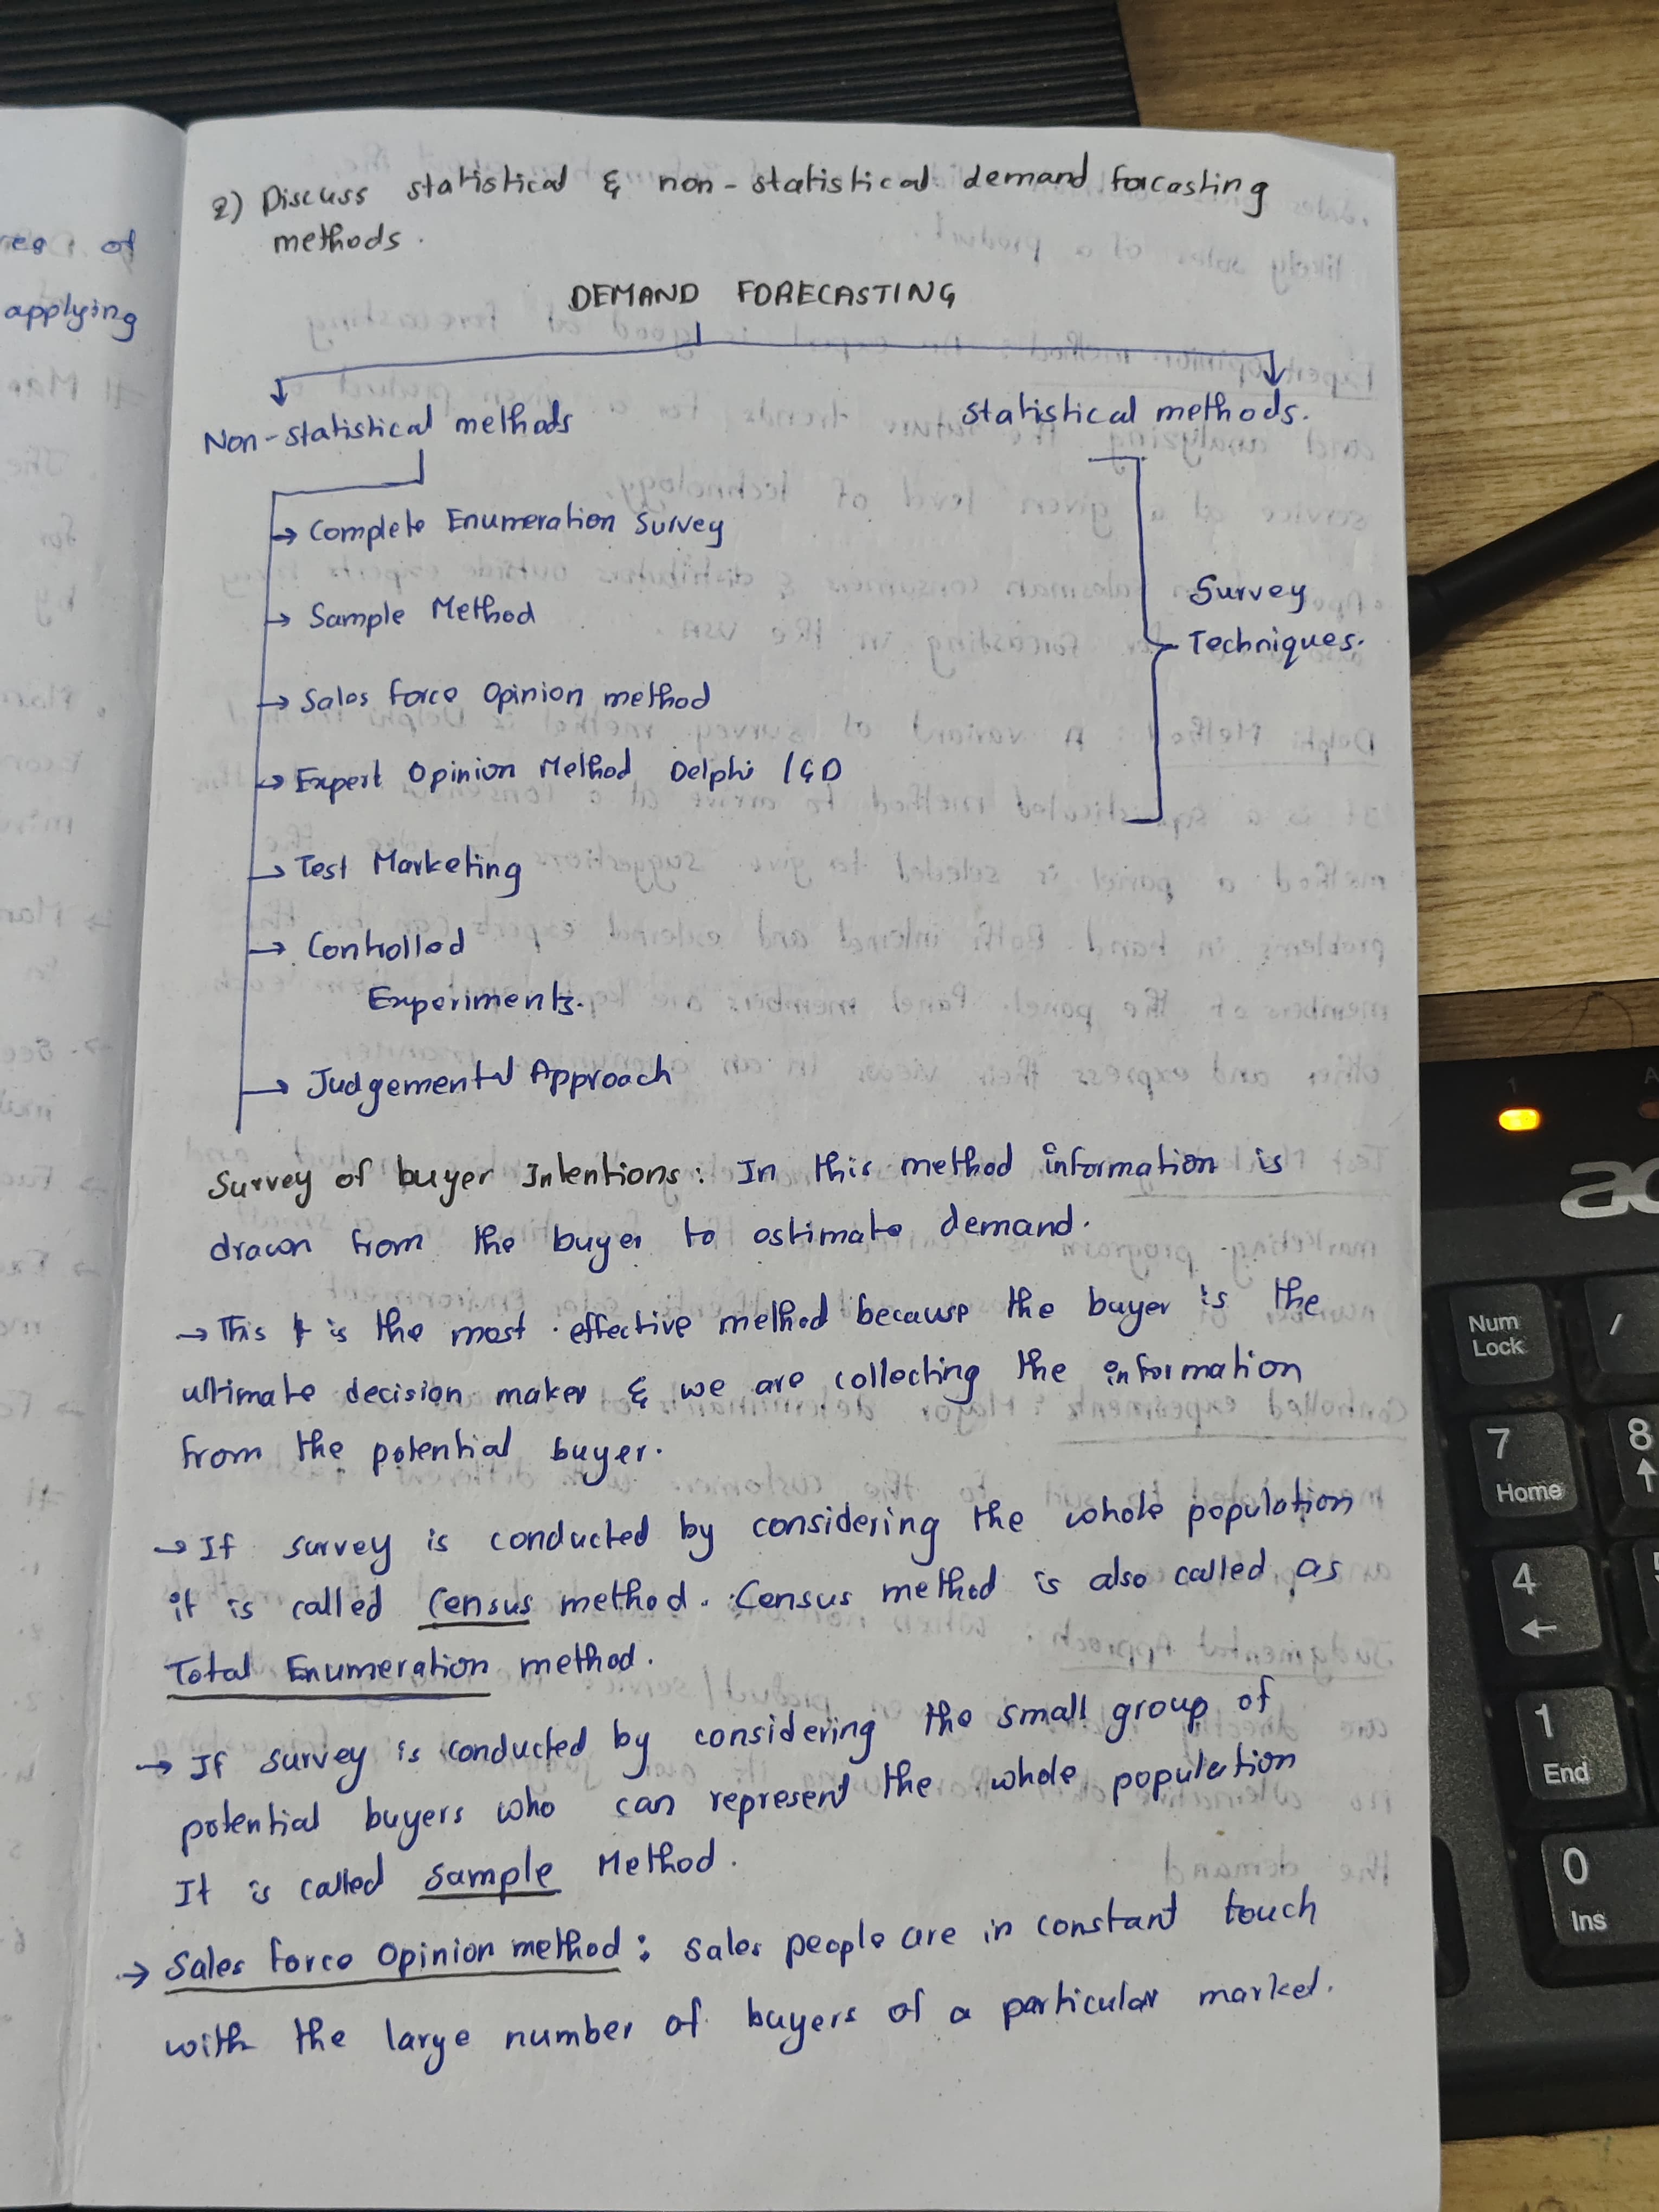 2) Discuss statistical & non-statistical demand forcasting
methods.
DEMAND FORECASTING
Non-statistical methods
statistical methods.
→ Complete Enumeration Survey
→ Sample Method
→ Sales force Opinion method
→ Expert Opinion Method Delphi /GD
→ Test Marketing
→ Controlled
Experiments.
→ Judgemental Approach
Survey
Techniques.
Survey of buyer Intentions: In this method information is
drawn from the buyer to estimate demand.
→ This is the most effective method because the buyer is the
ultimate decision maker & we are collecting the information
from the potential buyer.
→ If survey is conducted by considering the whole population
it is called Census method. Census method is also called as
Total Enumeration method.
→ If survey is conducted by considering the small group of
potential buyers who can represent the whole population
It is called Sample Method.
→ Sales force Opinion method: Sales people are in constant touch
with the large number of buyers of a particular market.
res of
applying
ac
Num
Lock
/
7
Home
8
↑
4
←
1
End
0
Ins
1
A